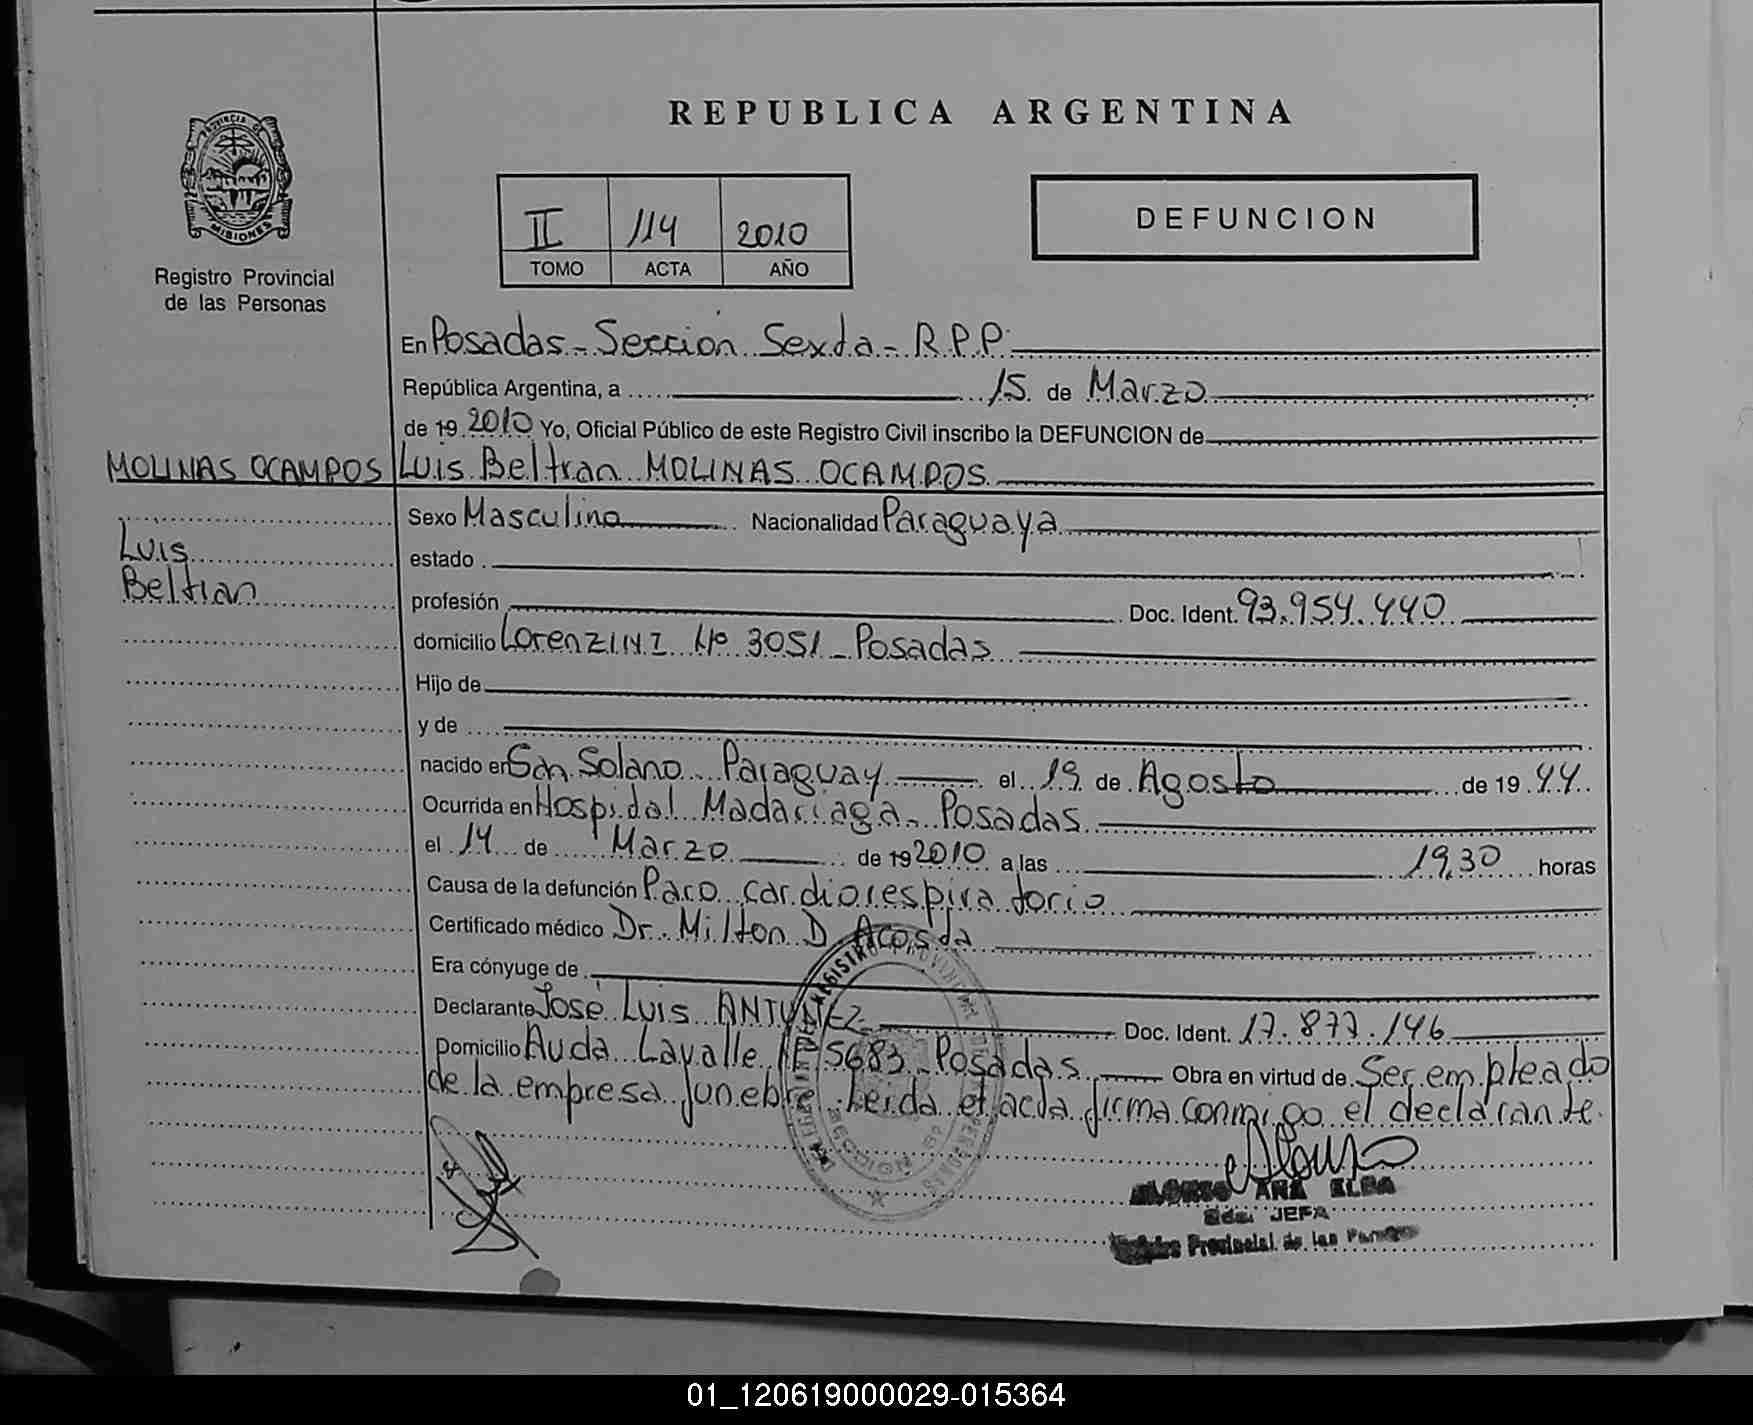 REPUBLICA ARGENTINA
PROVINCIA DE
MISIONES
Registro Provincial
de las Personas
II 114 2010
TOMO ACTA AÑO
DEFUNCION
En Posadas - Sección Sexta - R.P.P.
República Argentina, a 15 de Marzo
de 19 2010 Yo, Oficial Público de este Registro Civil inscribo la DEFUNCION de
MOLINAS OCAMPOS Luis Beltran MOLINAS OCAMPOS
Luis
Beltran
Sexo Masculino Nacionalidad Paraguaya
estado
profesión Doc. Ident. 93.954.440
domicilio Lorenzini Nº 3051 - Posadas
Hijo de
y de
nacido en San Solano Paraguay el 19 de Agosto de 19 44
Ocurrida en Hospital Madariaga - Posadas
el 14 de Marzo de 19 2010 a las 19,30 horas
Causa de la defunción Paro cardiorespiratorio
Certificado médico Dr. Milton D Acosta
Era cónyuge de
Declarante José Luis ANTUNEZ Doc. Ident. 17.877.146
Domicilio Avda Lavalle Nº 5683 - Posadas Obra en virtud de Ser empleado
de la empresa funebre. Leida el acta firma conmigo el declarante.
ALONSO ANA ELBA
JEFA
Provincial de las
01_120619000029-015364